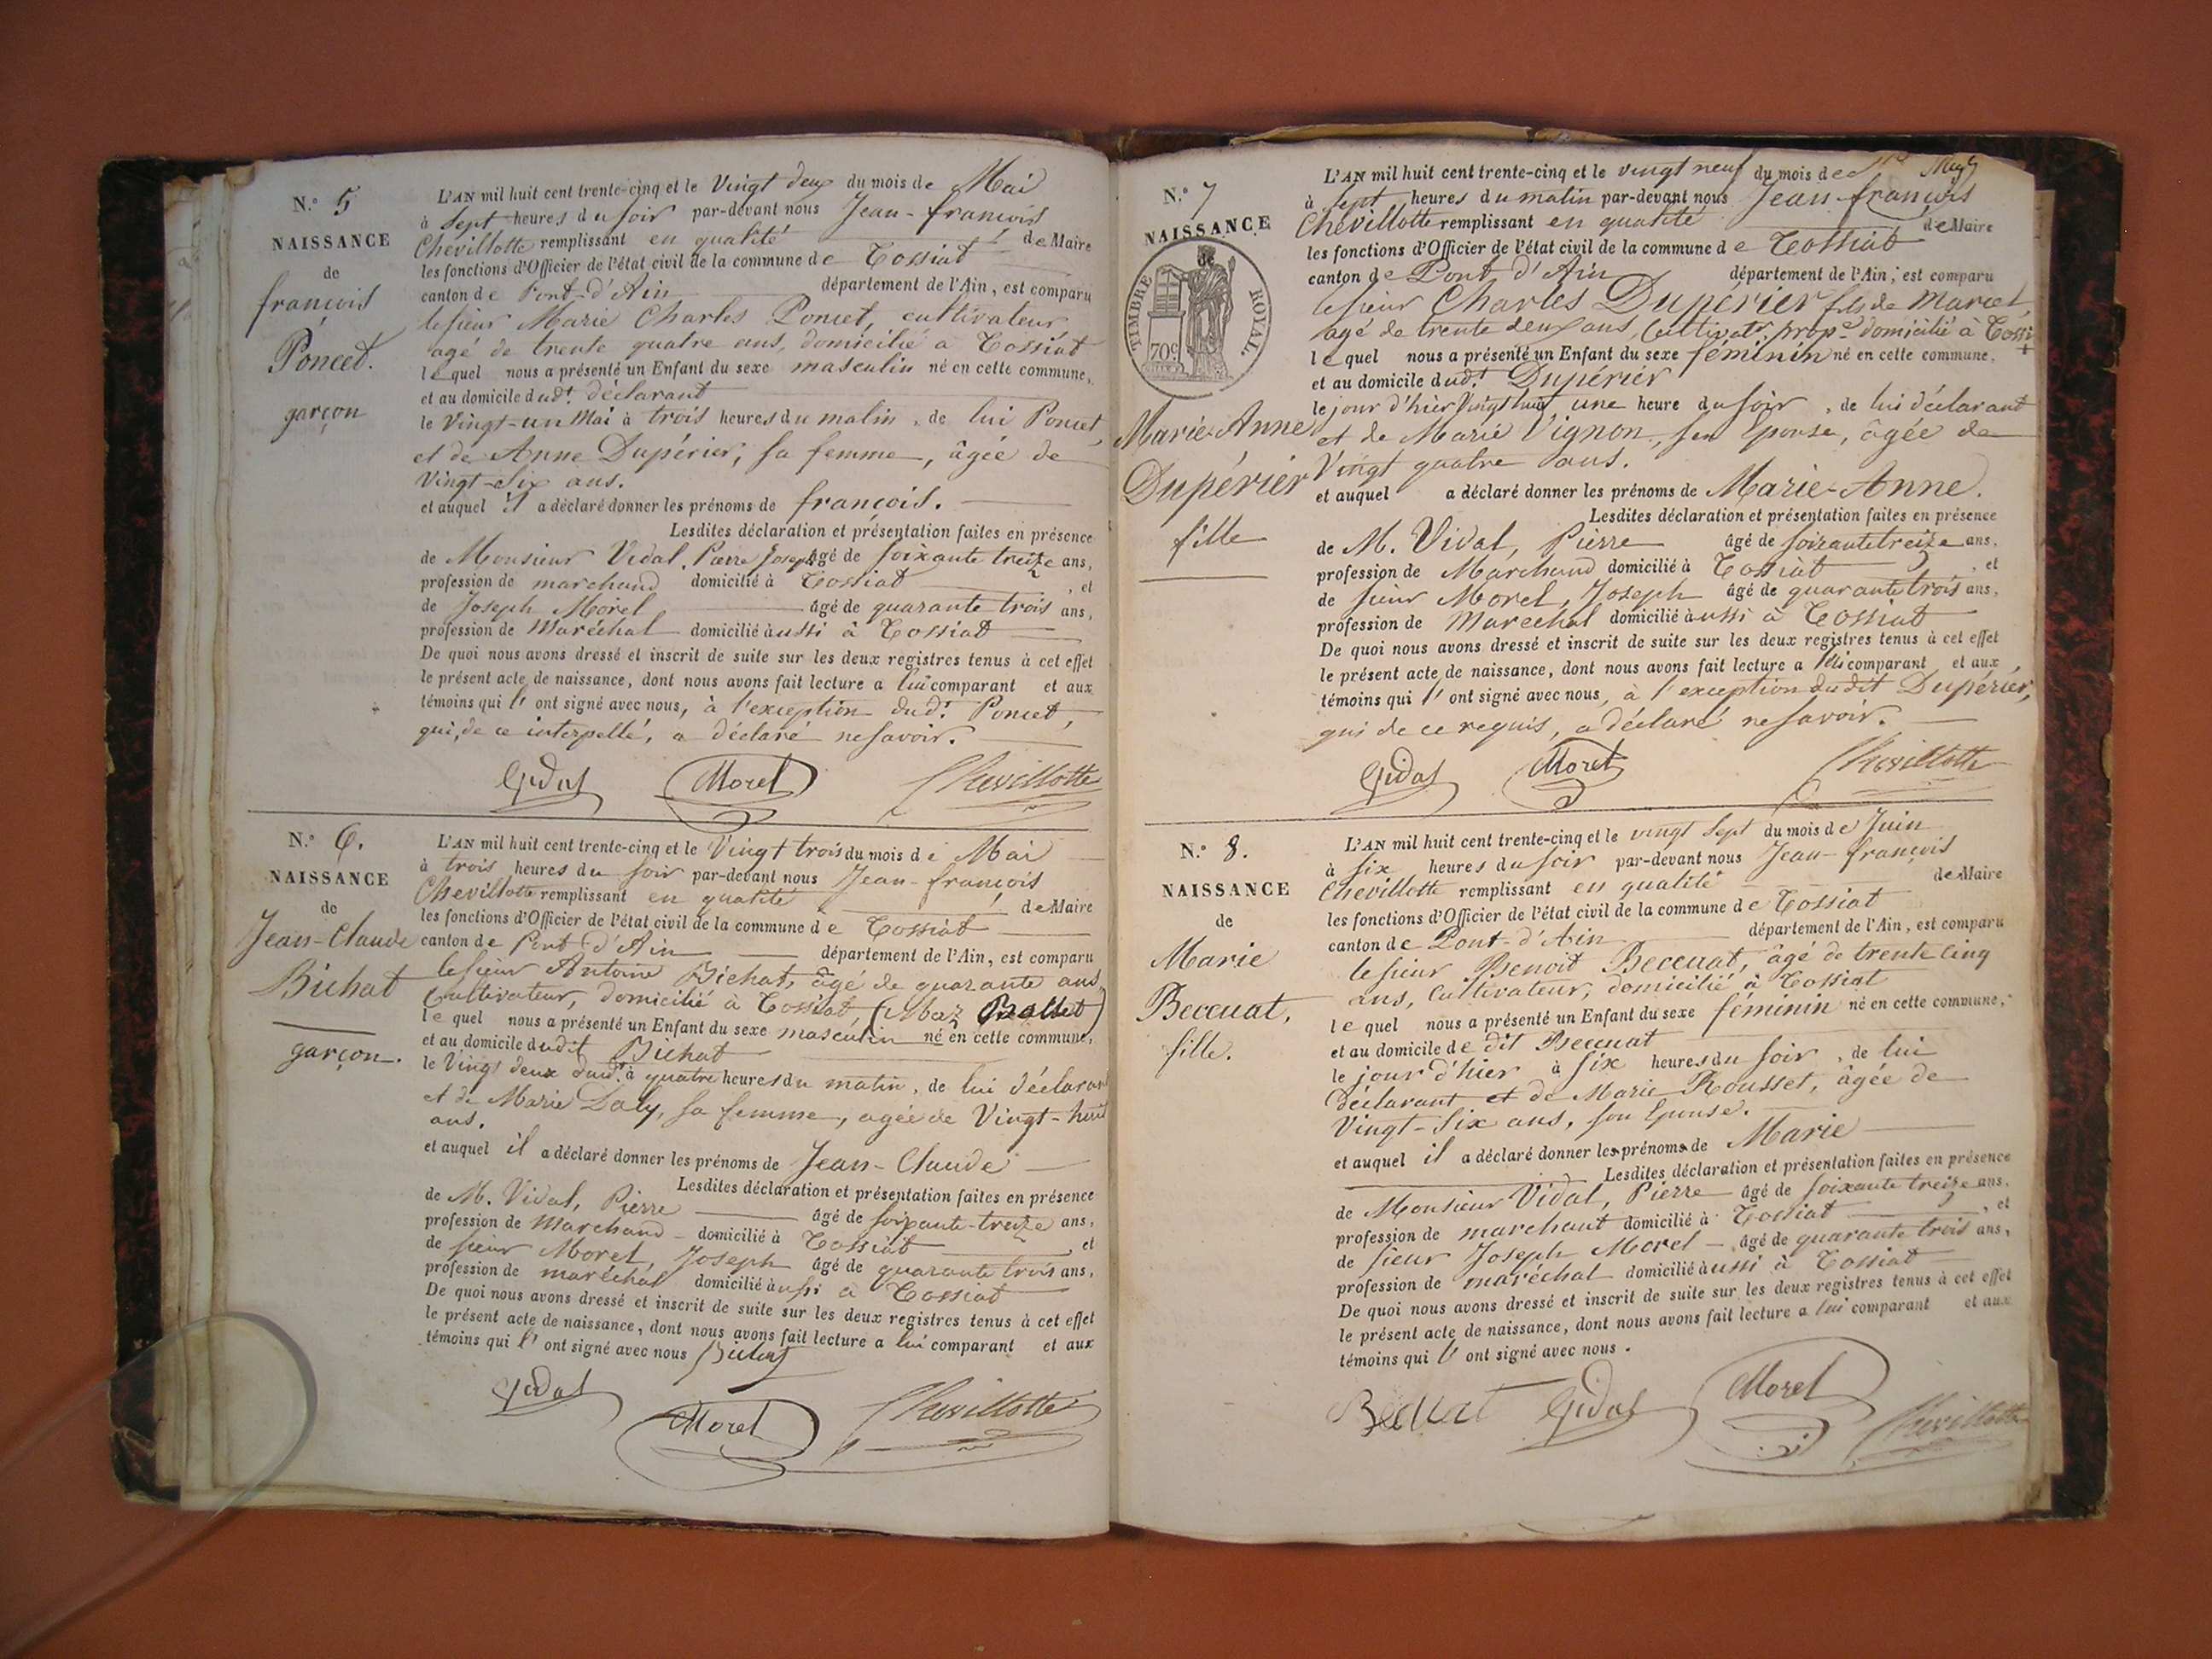 N.° 5
NAISSANCE
de
françois
Poncet.
garçon
L'AN mil huit cent trente-cinq et le Vingt deux du mois de Mai
à Sept heures du soir par-devant nous Jean-françois
Chevillotte remplissant en qualité de Maire
les fonctions d'Officier de l'état civil de la commune de Tossiat
canton de Pont-d'Ain département de l'Ain, est comparu
le sieur Marie Charles Poncet, cultivateur
agé de trente quatre ans, domicilié a Tossiat
lequel nous a présenté un Enfant du sexe masculin né en cette commune,
et au domicile dudt. déclarant
le Vingt-un Mai à trois heures du matin, de lui Poncet,
et de Anne Dupérier, sa femme, âgée de
Vingt-Six ans.
et auquel il a déclaré donner les prénoms de françois.
Lesdites déclaration et présentation faites en présence
de Monsieur Vidal, Pierre Joseph âgé de soixante treize ans,
profession de marchand domicilié à Tossiat, et
de Joseph Morel âgé de quarante trois ans,
profession de Maréchal domicilié aussi à Tossiat
De quoi nous avons dressé et inscrit de suite sur les deux registres tenus à cet effet
le présent acte de naissance, dont nous avons fait lecture a lui comparant et aux
témoins qui l'ont signé avec nous, à l'exception dudt. Poncet,
qui, de ce interpellé, a déclaré ne savoir.
Vidal Morel Chevillotte
N.° 6.
NAISSANCE
de
Jean-Claude
Bichat
garçon.
L'AN mil huit cent trente-cinq et le Vingt trois du mois de Mai
à trois heures du soir par-devant nous Jean-françois
Chevillotte remplissant en qualité de Maire
les fonctions d'Officier de l'état civil de la commune de Tossiat
canton de Pont-d'Ain département de l'Ain, est comparu
le sieur Antoine Bichat, âgé de quarante ans
Cultivateur, domicilié à Tossiat, (Maz
lequel nous a présenté un Enfant du sexe masculin né en cette commune,
et au domicile dudit Bichat
le Vingt deux dudt. à quatre heures du matin, de lui déclarant
et de Marie Laly, sa femme, agée de Vingt-huit
ans.
et auquel il a déclaré donner les prénoms de Jean-Claude
Lesdites déclaration et présentation faites en présence
de M. Vidal, Pierre âgé de soixante-treize ans,
profession de Marchand domicilié à Tossiat et
de sieur Morel, Joseph âgé de quarante trois ans,
profession de maréchal domicilié aussi a Tossiat
De quoi nous avons dressé et inscrit de suite sur les deux registres tenus à cet effet
le présent acte de naissance, dont nous avons fait lecture a lui comparant et aux
témoins qui l'ont signé avec nous Bichat
Vidal Morel Chevillotte
N.° 7
NAISSANCE
TIMBRE ROYAL.
70c
Marie-Anne
Dupérier
fille
L'AN mil huit cent trente-cinq et le vingt neuf du mois de
à sept heures du matin par-devant nous Jean françois
Chevillotte remplissant en qualité de Maire
les fonctions d'Officier de l'état civil de la commune de Tossiat
canton de Pont d'Ain département de l'Ain, est comparu
le sieur Charles Dupérier fils de Marcel,
agé de trente deux ans, Cultivatr. propre domicilié à Tossi
lequel nous a présenté un Enfant du sexe féminin né en cette commune,
et au domicile dudt. Dupérier
le jour d'hier Vingt huit, une heure du soir, de lui déclarant
et de Marie Vignon, son Epouse, âgée de
Vingt quatre ans.
et auquel a déclaré donner les prénoms de Marie-Anne.
Lesdites déclaration et présentation faites en présence
de M. Vidal, Pierre âgé de soixante treize ans,
profession de Marchand domicilié à Tossiat, et
de sieur Morel, Joseph âgé de quarante trois ans,
profession de Maréchal domicilié aussi à Tossiat
De quoi nous avons dressé et inscrit de suite sur les deux registres tenus à cet effet
le présent acte de naissance, dont nous avons fait lecture a lui comparant et aux
témoins qui l'ont signé avec nous, à l'exception dudit Dupérier,
qui de ce requis, a déclaré ne savoir.
Vidal Morel Chevillotte
N.° 8.
NAISSANCE
de
Marie
Beccuat,
fille.
L'AN mil huit cent trente-cinq et le vingt Sept du mois de Juin
à six heures du soir par-devant nous Jean-françois
Chevillotte remplissant en qualité de Maire
les fonctions d'Officier de l'état civil de la commune de Tossiat
canton de Pont-d'Ain département de l'Ain, est comparu
le sieur Benoit Beccuat, âgé de trente Cinq
ans, Cultivateur, domicilié à Tossiat
lequel nous a présenté un Enfant du sexe féminin né en cette commune,
et au domicile de dit Beccuat
le jour d'hier à six heures du soir, de lui
déclarant et de Marie Rousset, âgée de
Vingt-Six ans, son Epouse.
et auquel il a déclaré donner les prénoms de Marie
Lesdites déclaration et présentation faites en présence
de Monsieur Vidal, Pierre âgé de soixante treize ans,
profession de marchant domicilié à Tossiat, et
de sieur Joseph Morel âgé de quarante trois ans,
profession de maréchal domicilié aussi à Tossiat
De quoi nous avons dressé et inscrit de suite sur les deux registres tenus à cet effet
le présent acte de naissance, dont nous avons fait lecture a lui comparant et aux
témoins qui l'ont signé avec nous.
Becuat Vidal Morel Chevillotte